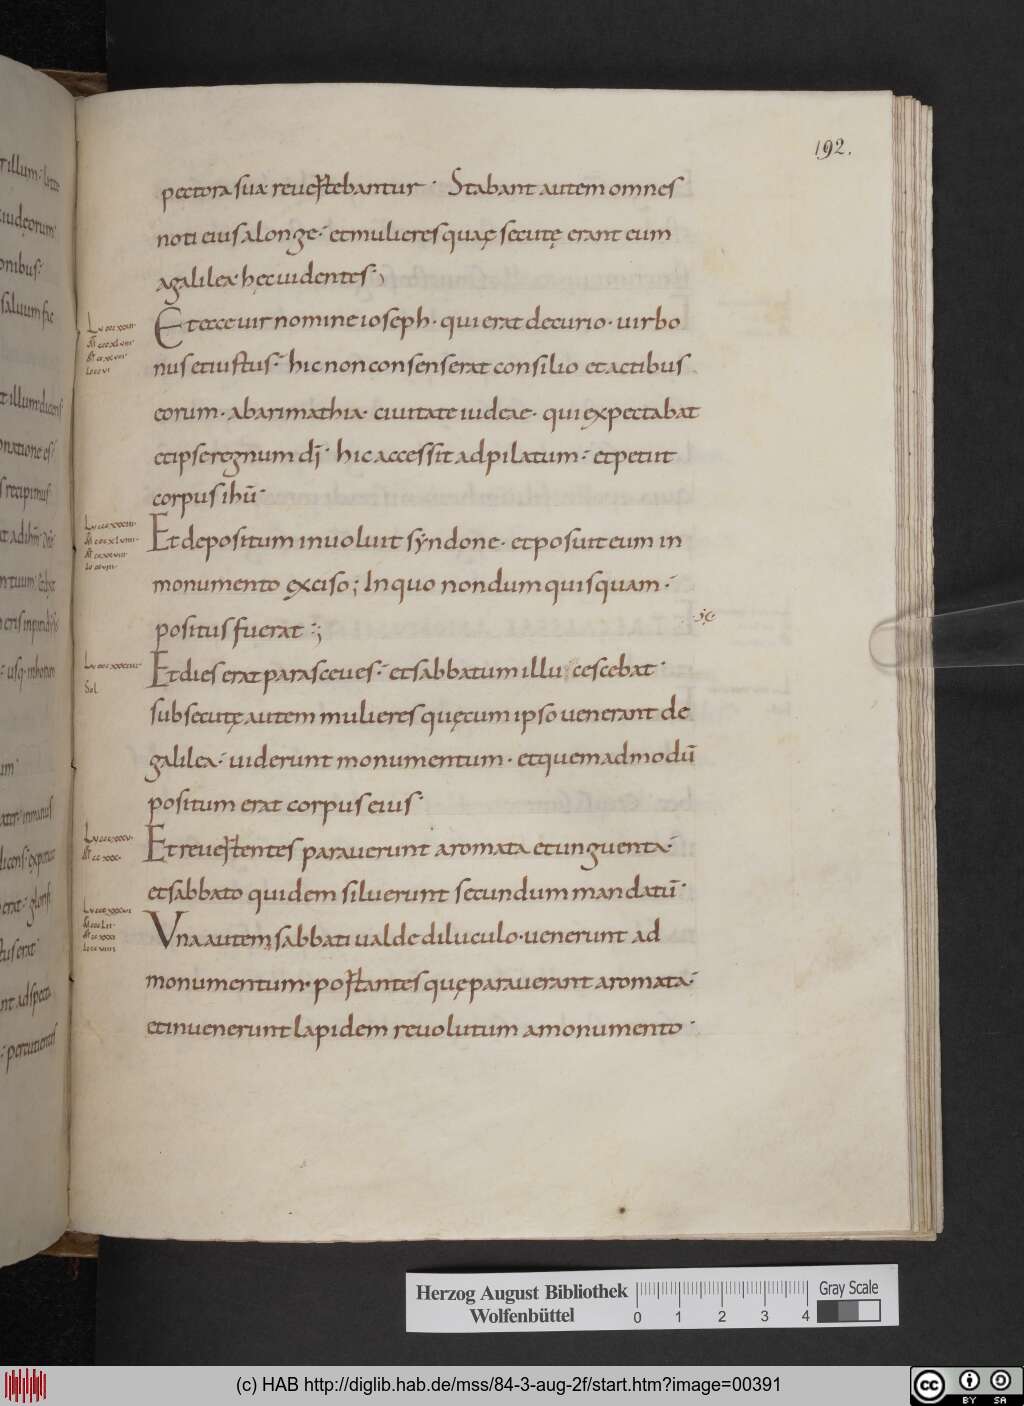 192.
pectora sua reuertebantur · Stabant autem omnes
noti eius alonge · et mulieres quaę secutę erant eum
agalilea hęc uidentes ·,
Et ecce uir nomine ioseph · qui erat decurio · uir bo
nus et iustus · hic non consenserat consilio et actibus
eorum · abarimathia · ciuitate iudeae · qui expectabat
et ipse regnum dī · hic accessit ad pilatum · et petiit
corpus ihū ·
Et depositum inuoluit syndone · et posuit eum in
monumento exciso ; In quo nondum quisquam ·
positus fuerat ·;
Et dies erat parasceues · et sabbatum illucescebat ·
subsecutę autem mulieres quę cum ipso uenerant de
galilea · uiderunt monumentum · et quemadmodū
positum erat corpus eius ·
Et reuertentes parauerunt aromata et unguenta ·
et sabbato quidem siluerunt secundum mandatū ·
Vna autem sabbati ualde diluculo · uenerunt ad
monumentum · portantes quę parauerant aromata ·
et inuenerunt lapidem reuolutum amonumento ·
Sol
Herzog August Bibliothek
Wolfenbüttel
0 1 2 3 4
Gray Scale
(c) HAB http://diglib.hab.de/mss/84-3-aug-2f/start.htm?image=00391
cc BY SA